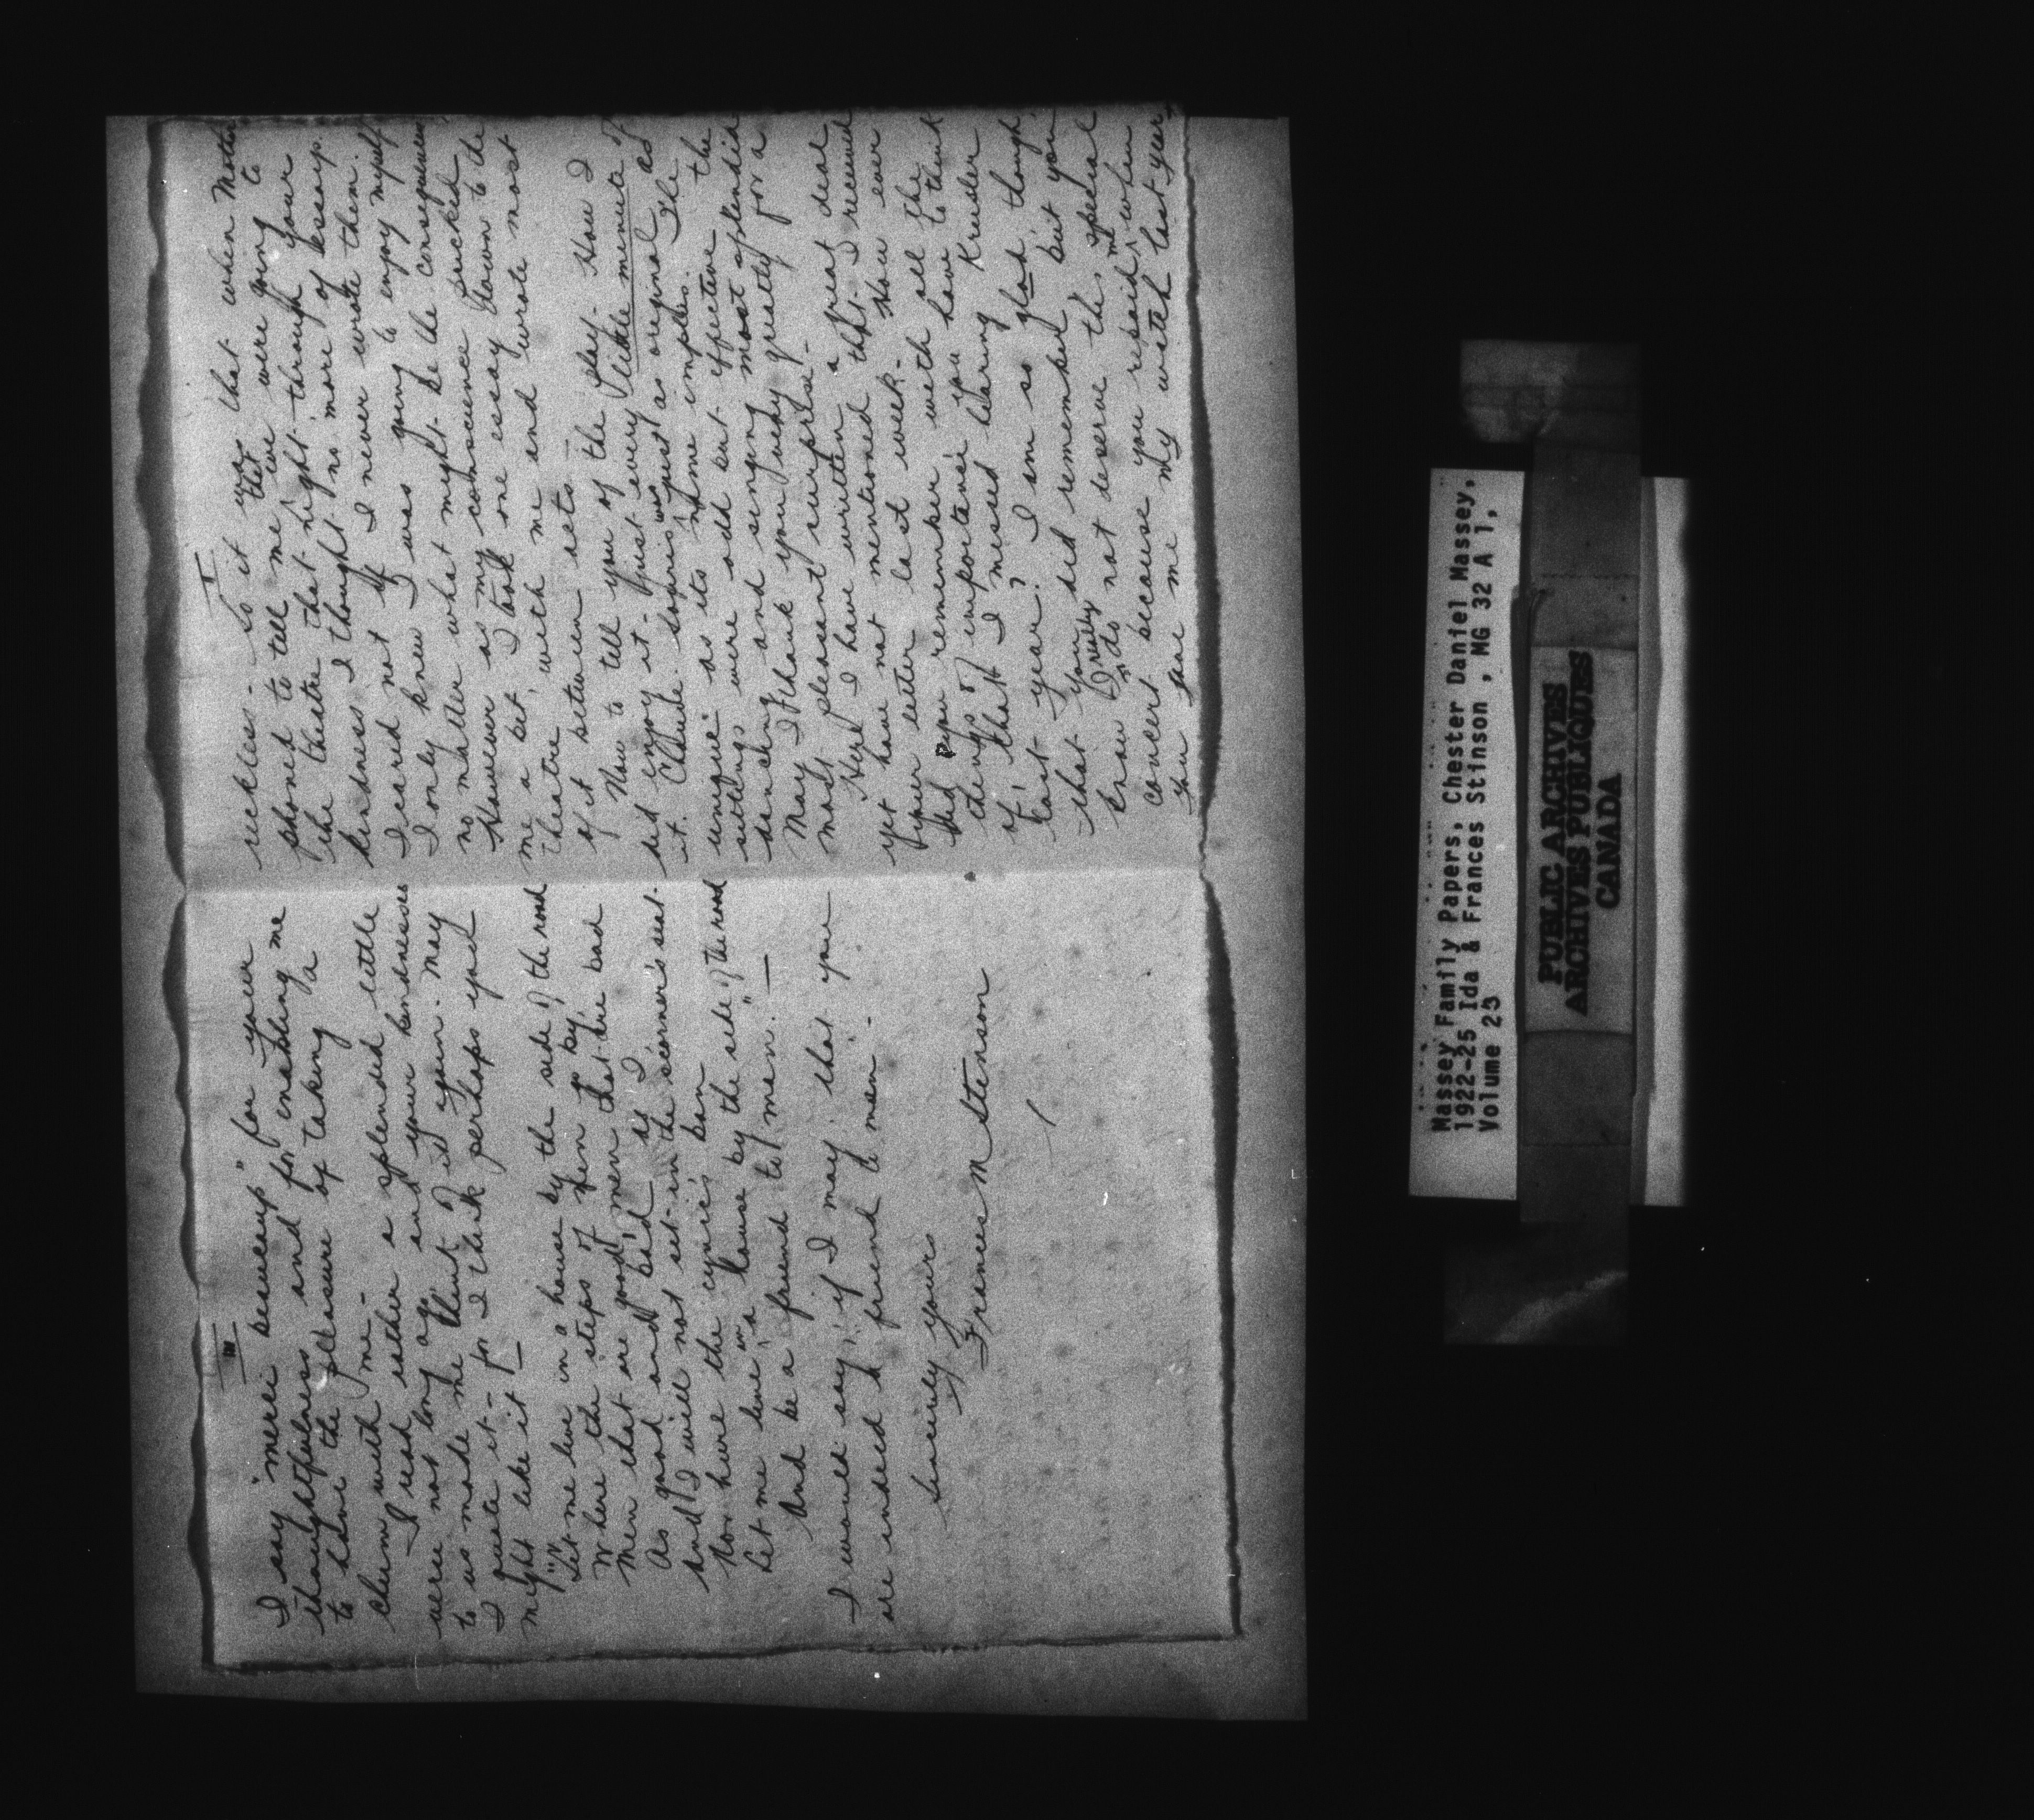 III
I say "merci beaucoup" for your
thoughtfulness and for enabling me
to have the pleasure of taking a
chum with me -
I read rather a splendid little
verse not long ago and your kindnesses
to us made me think of it again. May
I quote it - for I think perhaps you'd
might like it -
"Let me live in a house by the side of the road
Where the steps of men go by,
Men that are good, men that are bad
As good and bad as I
And I will not sit in the scorner's seat
Nor hurl the cynic's ban
Let me live in a house by the side of the road
And be a friend to men." -
I would say, if I may, that you
are indeed a friend to men -
Sincerely yours
Frances M Stinson
I
reckless - So it was that when Mother
phoned to tell me that we were going to
the theatre that night - through your
kindness I thought no more of essays.
I cared not if I never wrote them.
I only knew I was going to enjoy myself
no matter what might be the consequences
However as my conscience pricked
me a bit, I took one essay down to the
theatre with me and wrote most
of it between acts -
Now to tell you of the play - How I
did enjoy it - just every little minute of
it. Chauve Souris was just as original as
unique as its name implies. The
settings were odd but effective the
dancing and singing most splendid
May I thank you very greatly for a
most pleasant surprise -
Here I have written a great deal
yet have not mentioned that I received
your letter last week - How ever
did you remember with all the
things of importance you have to think
of, that I missed hearing Kreisler
last year? I am so glad, though,
that you did remember, but you
know I really do not deserve this special
concert because you repaid me when
you gave me my watch last year
Massey Family Papers, Chester Daniel Massey,
1922-25 Ida & Frances Stinson , MG 32 A 1,
Volume 23
PUBLIC ARCHIVES
ARCHIVES PUBLIQUES
CANADA